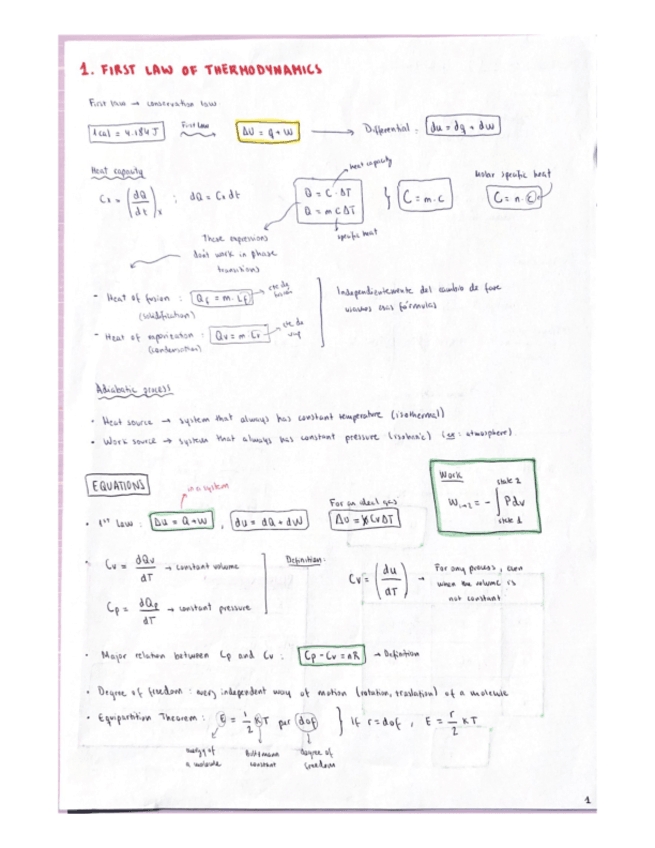 1. FIRST LAW OF THERMODYNAMICS
First law → conservation law
1 cal = 4.184 J First Law ΔU = q + W → Differential: du = dq + dW
Heat capacity heat capacity Molar specific heat
Cx = (dQ/dt)x ; dQ = Cx dt Q = C · ΔT } C = m · c C = n · c
Q = m c ΔT
specific heat
These expressions
don't work in phase
transitions
- Heat of fusion: Qf = m · Lf → cte de fusión
(solidification)
- Heat of vaporization: Qv = m · Lv → cte de vap
(condensation)
Independientemente del cambio de fase
usamos esas fórmulas
Adiabatic process
· Heat source → system that always has constant temperature (isothermal)
· Work source → system that always has constant pressure (isobaric) (ex: atmosphere)
EQUATIONS in a system
Work
W1→2 = - ∫ Pdv
state 2
state 1
For an ideal gas
· 1st Law: Δu = Q + W , du = dQ + dW Δu = CvΔT
· Cv = dQv/dT → constant volume
Cp = dQp/dT → constant pressure
Definition:
Cv = (du/dT) → For any process, even
when the volume is
not constant
· Major relation between Cp and Cv: Cp - Cv = nR → Definition
· Degree of freedom: every independent way of motion (rotation, traslation) of a molecule
· Equipartition Theorem: E = 1/2 KT per dof } If r = dof, E = r/2 KT
energy of
a molecule
Boltzmann
constant
Degree of
freedom
1